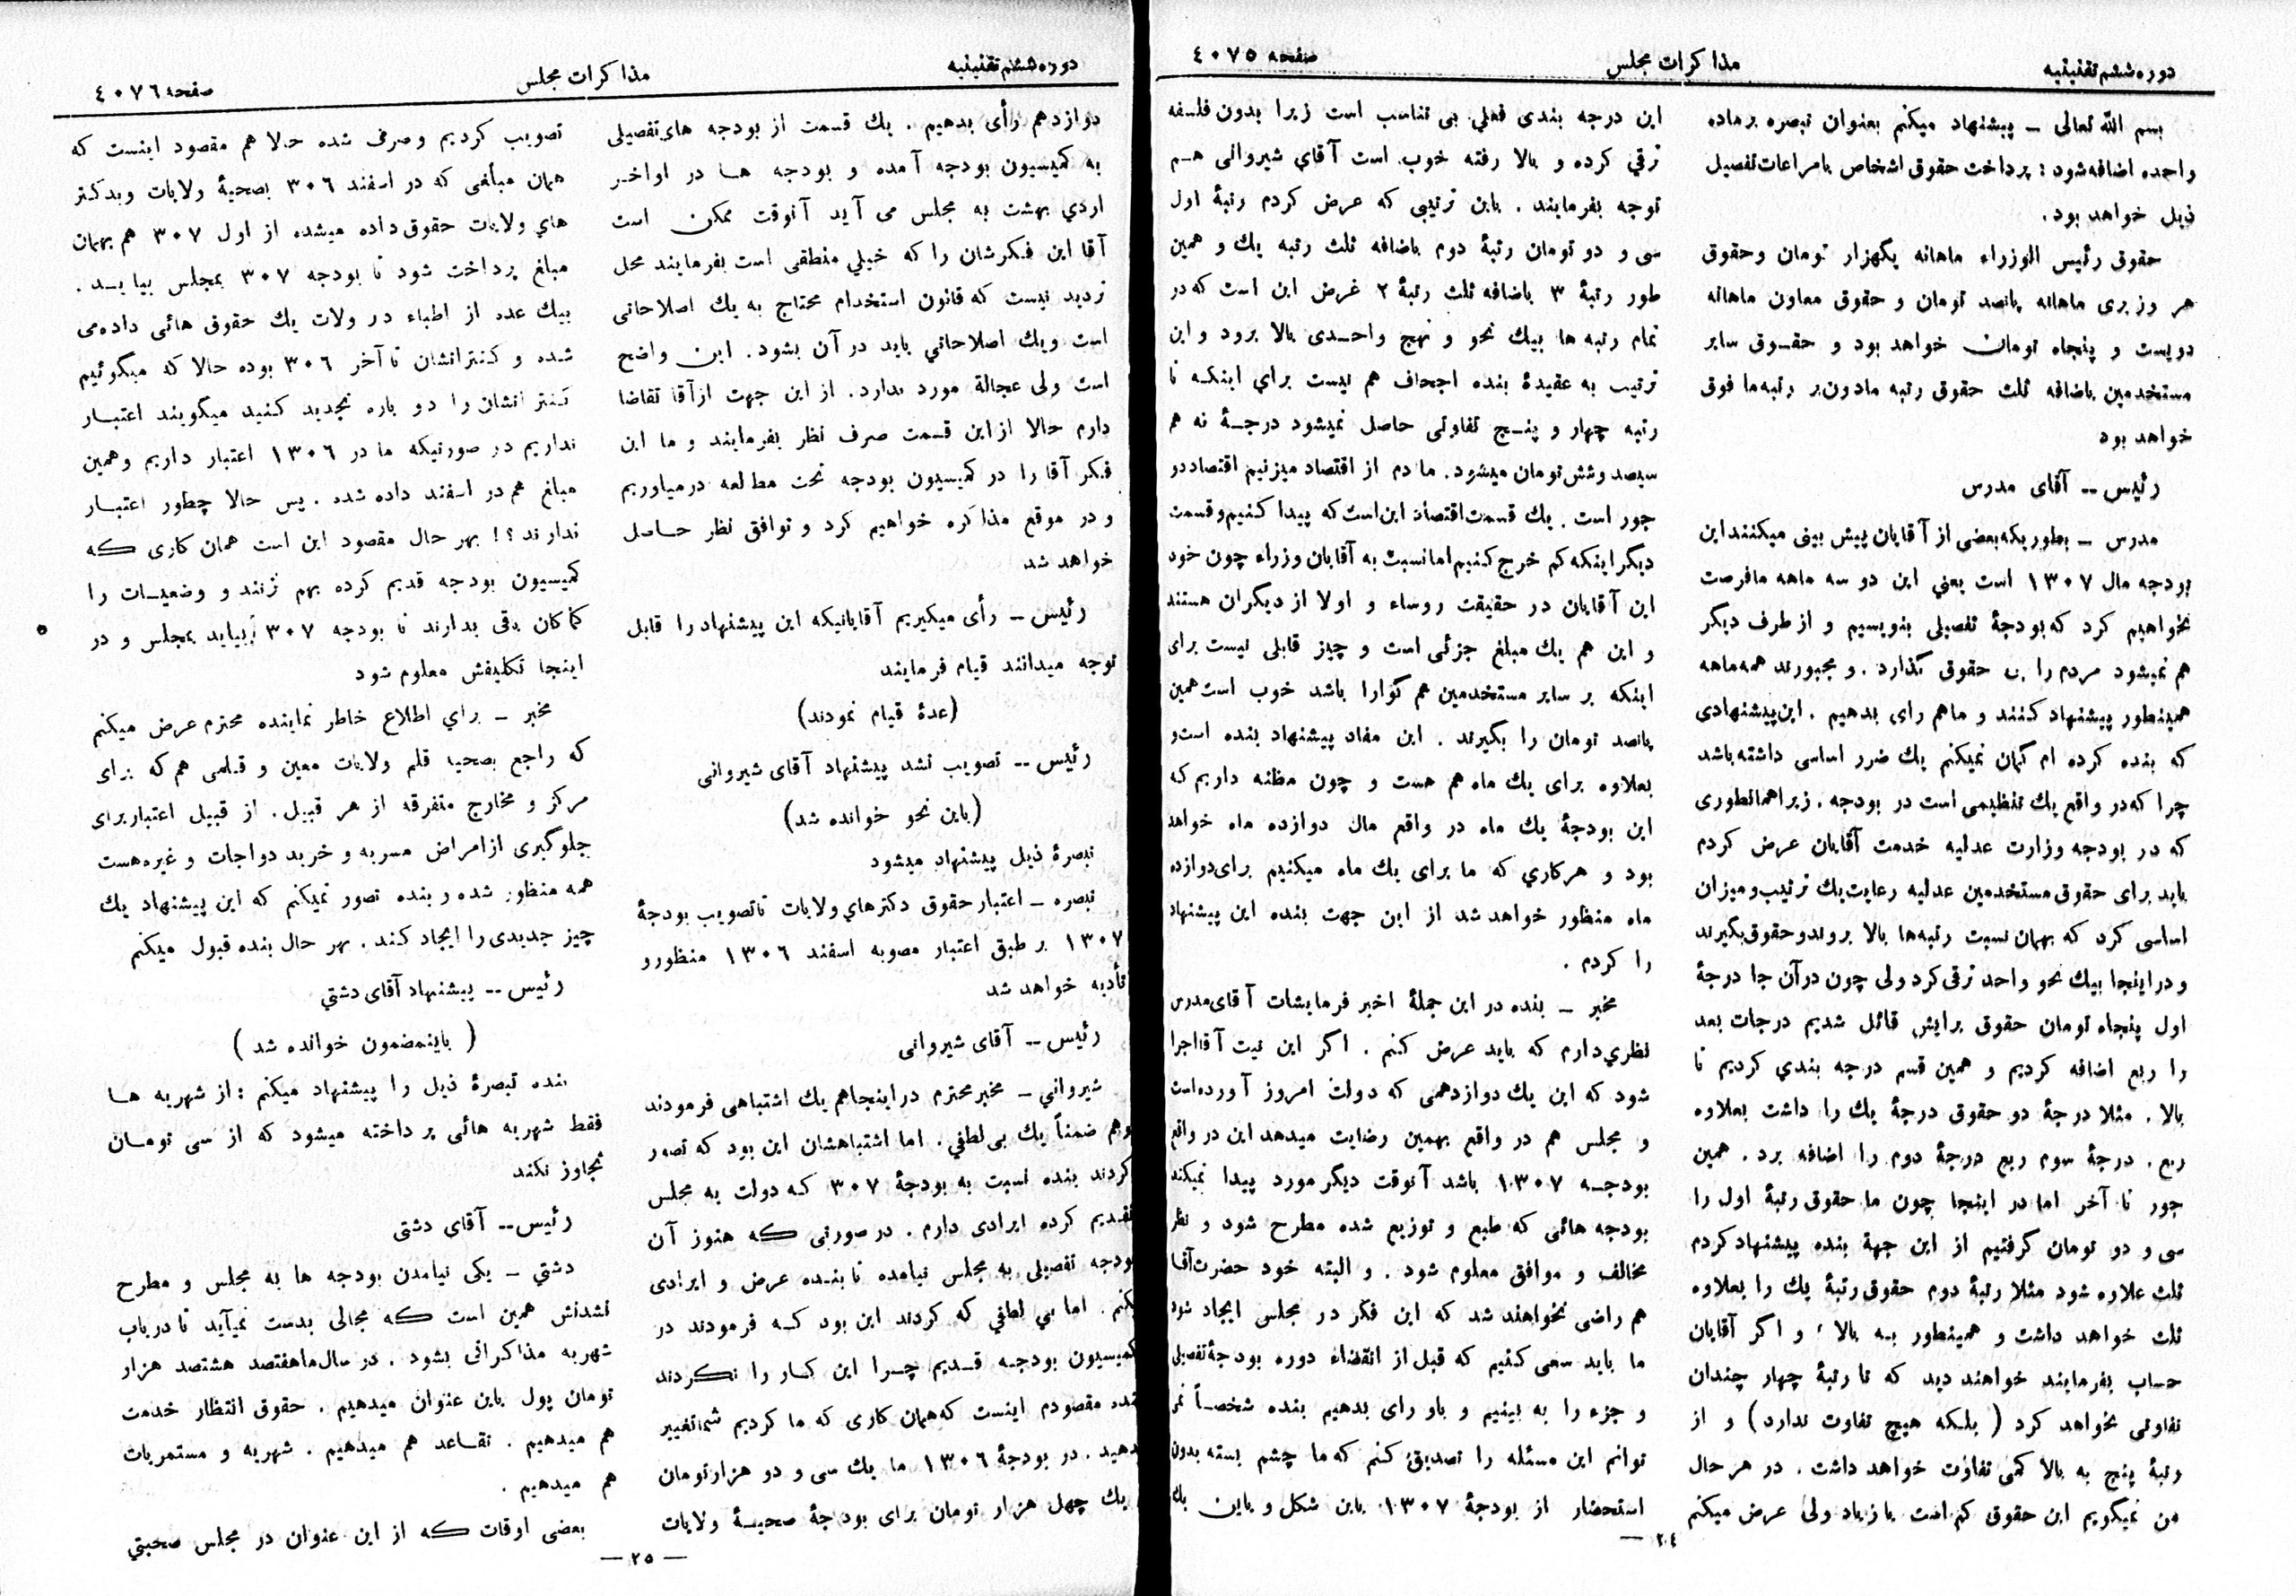 دوره ششم تقنینیه
مذاکرات مجلس
صفحه ٤٠٧٥
بسم الله تعالی ـ پیشنهاد میکنم بعنوان تبصره بر ماده
واحده اضافه شود : پرداخت حقوق اشخاص با مراعات تفصیل
ذیل خواهد بود.
حقوق رئیس الوزراء ماهانه یکهزار تومان و حقوق
هر وزیری ماهانه پانصد تومان و حقوق معاون ماهانه
دویست و پنجاه تومان خواهد بود و حقوق سایر
مستخدمین باضافه ثلث حقوق رتبه مادون بر رتبه ما فوق
خواهد بود
رئیس -- آقای مدرس
مدرس ـ بطوریکه بعضی از آقایان پیش بینی میکنند این
بودجه مال ١٣٠٧ است یعنی این دو سه ماهه ما فرصت
نخواهیم کرد که بودجهٔ تفصیلی بنویسیم و از طرف دیگر
هم نمیشود مردم را بی حقوق گذارد . و مجبورند همه ماهه
همینطور پیشنهاد کنند و ما هم رای بدهیم . این پیشنهادی
که بنده کرده ام گمان نمیکنم یك ضرر اساسی داشته باشد
چرا که در واقع یك تنظیمی است در بودجه . زیرا همانطوری
که در بودجه وزارت عدلیه خدمت آقایان عرض کردم
باید برای حقوق مستخدمین عدلیه رعایت یك ترتیب و میزان
اساسی کرد که بهمان نسبت رتبه‌ها بالا بروند و حقوق بگیرند
و در اینجا بیك نحو واحد ترقی کرد ولی چون در آن جا درجهٔ
اول پنجاه تومان حقوق برایش قائل شدیم درجات بعد
را ربع اضافه کردیم و همین قسم درجه بندی کردیم تا
بالا . مثلا درجهٔ دو حقوق درجهٔ یك را داشت بعلاوه
ربع . درجهٔ سوم ربع درجهٔ دوم را اضافه برد . همین
جور تا آخر اما در اینجا چون ما حقوق رتبهٔ اول را
سی و دو تومان گرفتیم از این جهة بنده پیشنهاد کردم
ثلث علاوه شود مثلا رتبهٔ دوم حقوق رتبهٔ یك را بعلاوه
ثلث خواهد داشت و همینطور به بالا ، و اگر آقایان
حساب بفرمایند خواهند دید که تا رتبهٔ چهار چندان
تفاوتی نخواهد کرد ( بلکه هیچ تفاوت ندارد ) و از
رتبهٔ پنج به بالا کمی تفاوت خواهد داشت . در هر حال
من نمیگویم این حقوق کم است یا زیاد ولی عرض میکنم
این درجه بندی فعلی بی تناسب است زیرا بدون فلسفه
ترقی کرده و بالا رفته خوب است آقای شیروانی هم
توجه بفرمایند . باین ترتیبی که عرض کردم رتبهٔ اول
سی و دو تومان رتبهٔ دوم باضافه ثلث رتبه یك و همین
طور رتبهٔ ٣ باضافه ثلث رتبهٔ ٢ غرض این است که در
تمام رتبه ها بیك نحو و نهج واحدی بالا برود و این
ترتیب به عقیدهٔ بنده اجحاف هم نیست برای اینکه تا
رتبه چهار و پنج تفاوتی حاصل نمیشود درجهٔ نه هم
سیصد و شش تومان میشود . ما دم از اقتصاد میزنیم اقتصاد دو
جور است . یك قسمت اقتصاد این است که پیدا کنیم و قسمت
دیگر اینکه کم خرج کنیم اما نسبت به آقایان وزراء چون خود
این آقایان در حقیقت روساء و اولا از دیگران هستند
و این هم یك مبلغ جزئی است و چیز قابلی نیست برای
اینکه بر سایر مستخدمین هم گوارا باشد خوب است همین
پانصد تومان را بگیرند . این مفاد پیشنهاد بنده است و
بعلاوه برای یك ماه هم هست و چون مظنه داریم که
این بودجهٔ یك ماه در واقع مال دوازده ماه خواهد
بود و هرکاری که ما برای یك ماه میکنیم برای دوازده
ماه منظور خواهد شد از این جهت بنده این پیشنهاد
را کردم .
مخبر ـ بنده در این جملهٔ اخیر فرمایشات آقای مدرس
نظری دارم که باید عرض کنم . اگر این نیت آقا اجرا
شود که این یك دوازدهمی که دولت امروز آورده است
و مجلس هم در واقع بهمین رضایت میدهد این در واقع
بودجه ١٣٠٧ باشد آنوقت دیگر مورد پیدا نمیکند
بودجه هائی که طبع و توزیع شده مطرح شود و نظر
مخالف و موافق معلوم شود . و البته خود حضرت آقا
هم راضی نخواهند شد که این فکر در مجلس ایجاد شود
ما باید سعی کنیم که قبل از انقضاء دوره بودجهٔ تفصیلی
و جزء را به بینیم و باو رای بدهیم بنده شخصاً نمی
توانم این مسئله را تصدیق کنم که ما چشم بسته بدون
استحضار از بودجهٔ ١٣٠٧ باین شکل و باین یك
ــ ٢٤ ــ
دوره ششم تقنینیه
مذاکرات مجلس
صفحه ٤٠٧٦
دوازدهم رأی بدهیم . یك قسمت از بودجه های تفصیلی
به کمیسیون بودجه آمده و بودجه ها در اواخر
اردی بهشت به مجلس می آید آنوقت ممکن است
آقا این فکرشان را که خیلی منطقی است بفرمایند محل
تردید نیست که قانون استخدام محتاج به یك اصلاحاتی
است و یك اصلاحاتی باید در آن بشود . این واضح
است ولی عجالة مورد ندارد . از این جهت از آقا تقاضا
دارم حالا از این قسمت صرف نظر بفرمایند و ما این
فکر آقا را در کمیسیون بودجه تحت مطالعه در میاوریم
و در موقع مذاکره خواهیم کرد و توافق نظر حاصل
خواهد شد
رئیس ـ رأی میگیریم آقایانیکه این پیشنهاد را قابل
توجه میدانند قیام فرمایند
(عدهٔ قیام نمودند)
رئیس -- تصویب نشد پیشنهاد آقای شیروانی
(باین نحو خوانده شد)
تبصرهٔ ذیل پیشنهاد میشود
تبصره ـ اعتبار حقوق دکترهای ولایات تا تصویب بودجهٔ
١٣٠٧ بر طبق اعتبار مصوبه اسفند ١٣٠٦ منظور و
تأدیه خواهد شد
رئیس -- آقای شیروانی
شیروانی ـ مخبر محترم در اینجا هم یك اشتباهی فرمودند
و هم ضمناً یك بی لطفی . اما اشتباهشان این بود که تصور
کردند بنده نسبت به بودجهٔ ٣٠٧ که دولت به مجلس
تقدیم کرده ایرادی دارم . در صورتی که هنوز آن
بودجه تفصیلی به مجلس نیامده تا بنده عرض و ایرادی
بکنم . اما بی لطفی که کردند این بود که فرمودند در
کمیسیون بودجه قدیم چرا این کار را نکردند
بنده مقصودم اینست که همان کاری که ما کردیم شما تغییر
بدهید . در بودجهٔ ١٣٠٦ ما یك سی و دو هزار تومان
یك چهل هزار تومان برای بودجهٔ صحیهٔ ولایات
تصویب کردیم و صرف شده حالا هم مقصود اینست که
همان مبلغی که در اسفند ٣٠٦ بصحیهٔ ولایات و بدکتر
های ولایات حقوق داده میشده از اول ٣٠٧ هم بهمان
مبلغ پرداخت شود تا بودجه ٣٠٧ بمجلس بیاید .
بیك عده از اطباء در ولات یك حقوق هائی داده می
شده و کنتراتشان تا آخر ٣٠٦ بوده حالا که میگوئیم
کنتراتشان را دو باره تجدید کنید میگویند اعتبار
نداریم در صورتیکه ما در ١٣٠٦ اعتبار داریم و همین
مبلغ هم در اسفند داده شده . پس حالا چطور اعتبار
ندارند ؟! بهر حال مقصود این است همان کاری که
کمیسیون بودجه قدیم کرده بهم نزنند و وضعیات را
کماکان باقی بدارند تا بودجه ٣٠٧ بیاید بمجلس و در
اینجا تکلیفش معلوم شود
مخبر ـ برای اطلاع خاطر نماینده محترم عرض میکنم
که راجع بصحیه قلم ولایات معین و قلمی هم که برای
مرکز و مخارج متفرقه از هر قبیل . از قبیل اعتبار برای
جلوگیری از امراض مسریه و خرید دواجات و غیره هست
همه منظور شده و بنده تصور نمیکنم که این پیشنهاد یك
چیز جدیدی را ایجاد کند . بهر حال بنده قبول میکنم
رئیس -- پیشنهاد آقای دشتی
( باینمضمون خوانده شد )
بنده تبصرهٔ ذیل را پیشنهاد میکنم : از شهریه ها
فقط شهریه هائی پرداخته میشود که از سی تومان
تجاوز نکند
رئیس -- آقای دشتی
دشتی ـ یکی نیامدن بودجه ها به مجلس و مطرح
نشدنش همین است که مجالی بدست نمیآید تا در باب
شهریه مذاکراتی بشود . در سال ما هفتصد هشتصد هزار
تومان پول باین عنوان میدهیم . حقوق انتظار خدمت
هم میدهیم . تقاعد هم میدهیم . شهریه و مستمریات
هم میدهیم .
بعضی اوقات که از این عنوان در مجلس صحبتی
ــ ٢٥ ــ